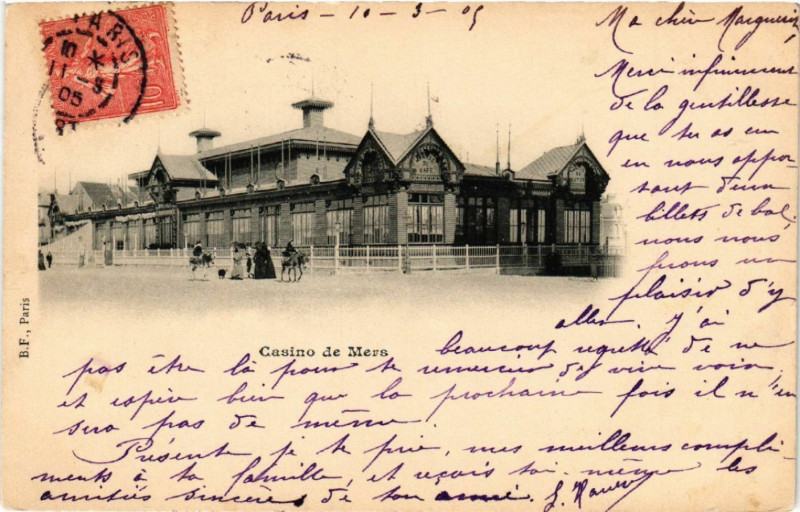 Paris - 10 - 3 - 05
PARIS
11 - 3
05
10
Ma chère Marguerite,
Merci infiniment
de la gentillesse
que tu as eu
en nous appor-
tant deux
billets de bal,
nous nous
ferons un
plaisir d'y
aller. J'ai
beaucoup regretté de ne
CAFÉ
B.F., Paris
Casino de Mers
pas être là pour te remercier de vive voix
et espère bien que la prochaine fois il n'en
sera pas de même.
Présente je te prie, mes meilleurs compli-
ments à ta famille, et reçois toi-même les
amitiés sincères de ton